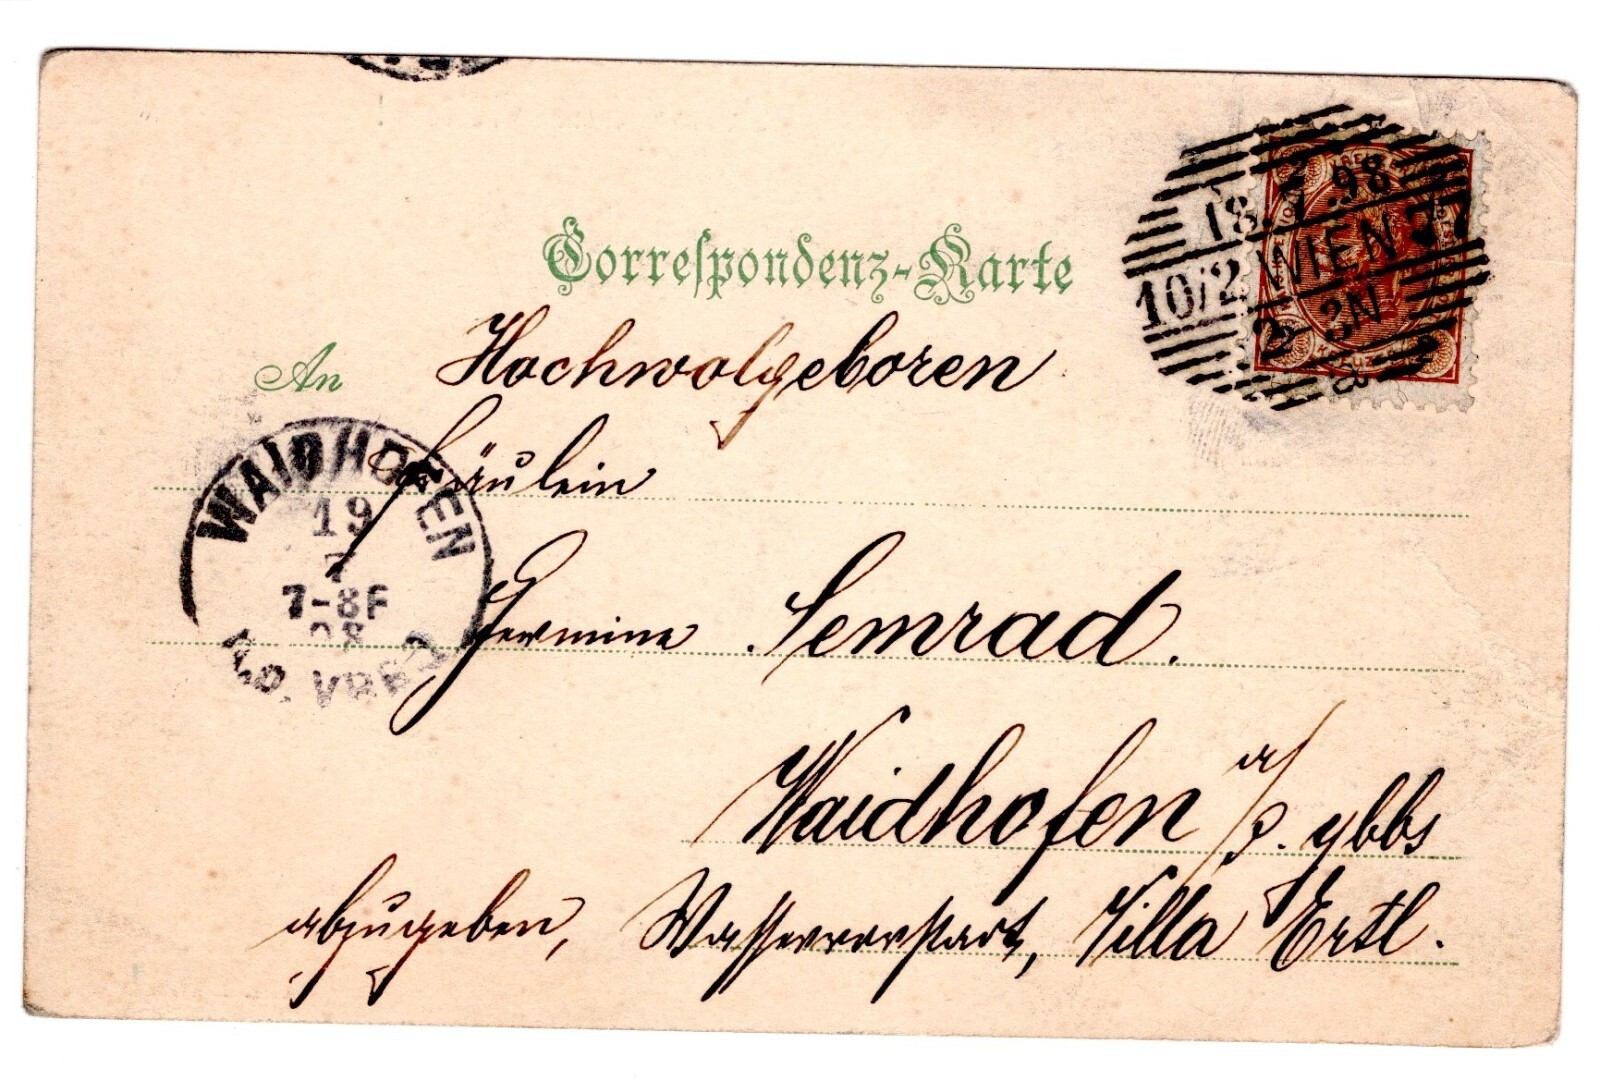 Correspondenz-Karte
18.7.98
10/2 WIEN 77
2-3N
An Hochwolgeboren
Fräulein
Hermine Semrad.
Waidhofen a/d. ybbs
abzugeben, Wasservorstadt, Villa Ertl.
WAIDHOFEN
19
7
7-8F
98
A.D. YBBS